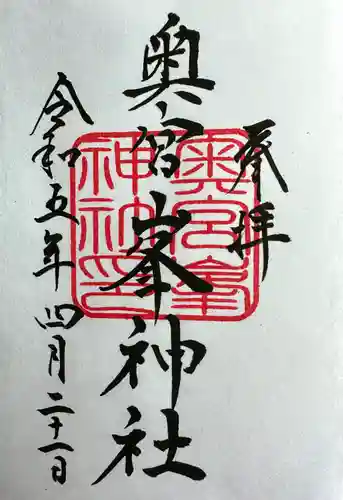 奉拝
奥宮峯神社
令和五年四月二十一日
奥宮峯
神社印